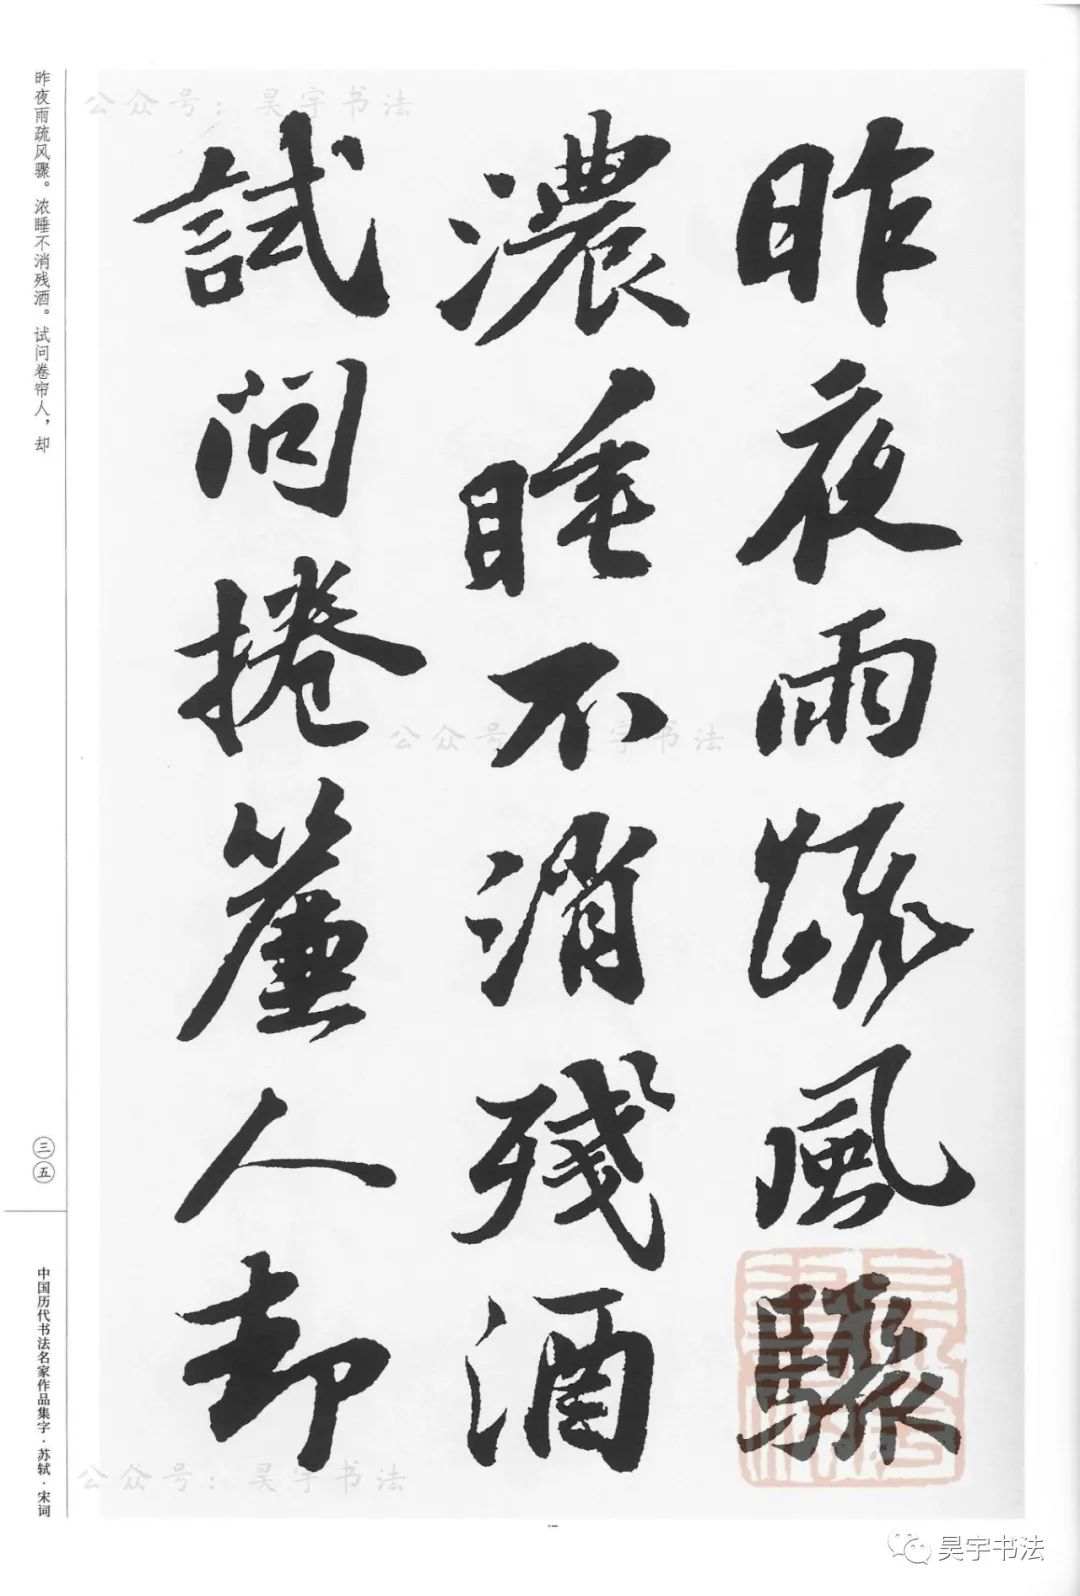 昨夜雨疏風驟
濃睡不消殘酒
試問捲簾人却
昨夜雨疏风骤。浓睡不消残酒。试问卷帘人，却
三五
中国历代书法名家作品集字·苏轼·宋词
公众号：昊宇书法
公众号：昊宇书法
公众号：昊宇书法
昊宇书法